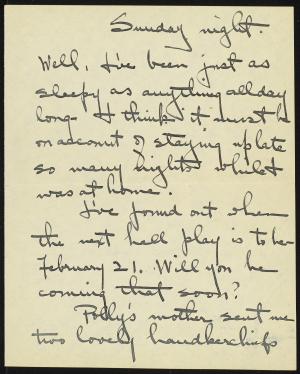 Sunday night.
Well, I've been just as
sleepy as anything all day
long - I think it must be
on account of staying up late
so many nights while I
was at home.
I've found out when
the next hall play is to be -
February 21. Will you be
coming that soon?
Polly's mother sent me
two lovely handkerchiefs